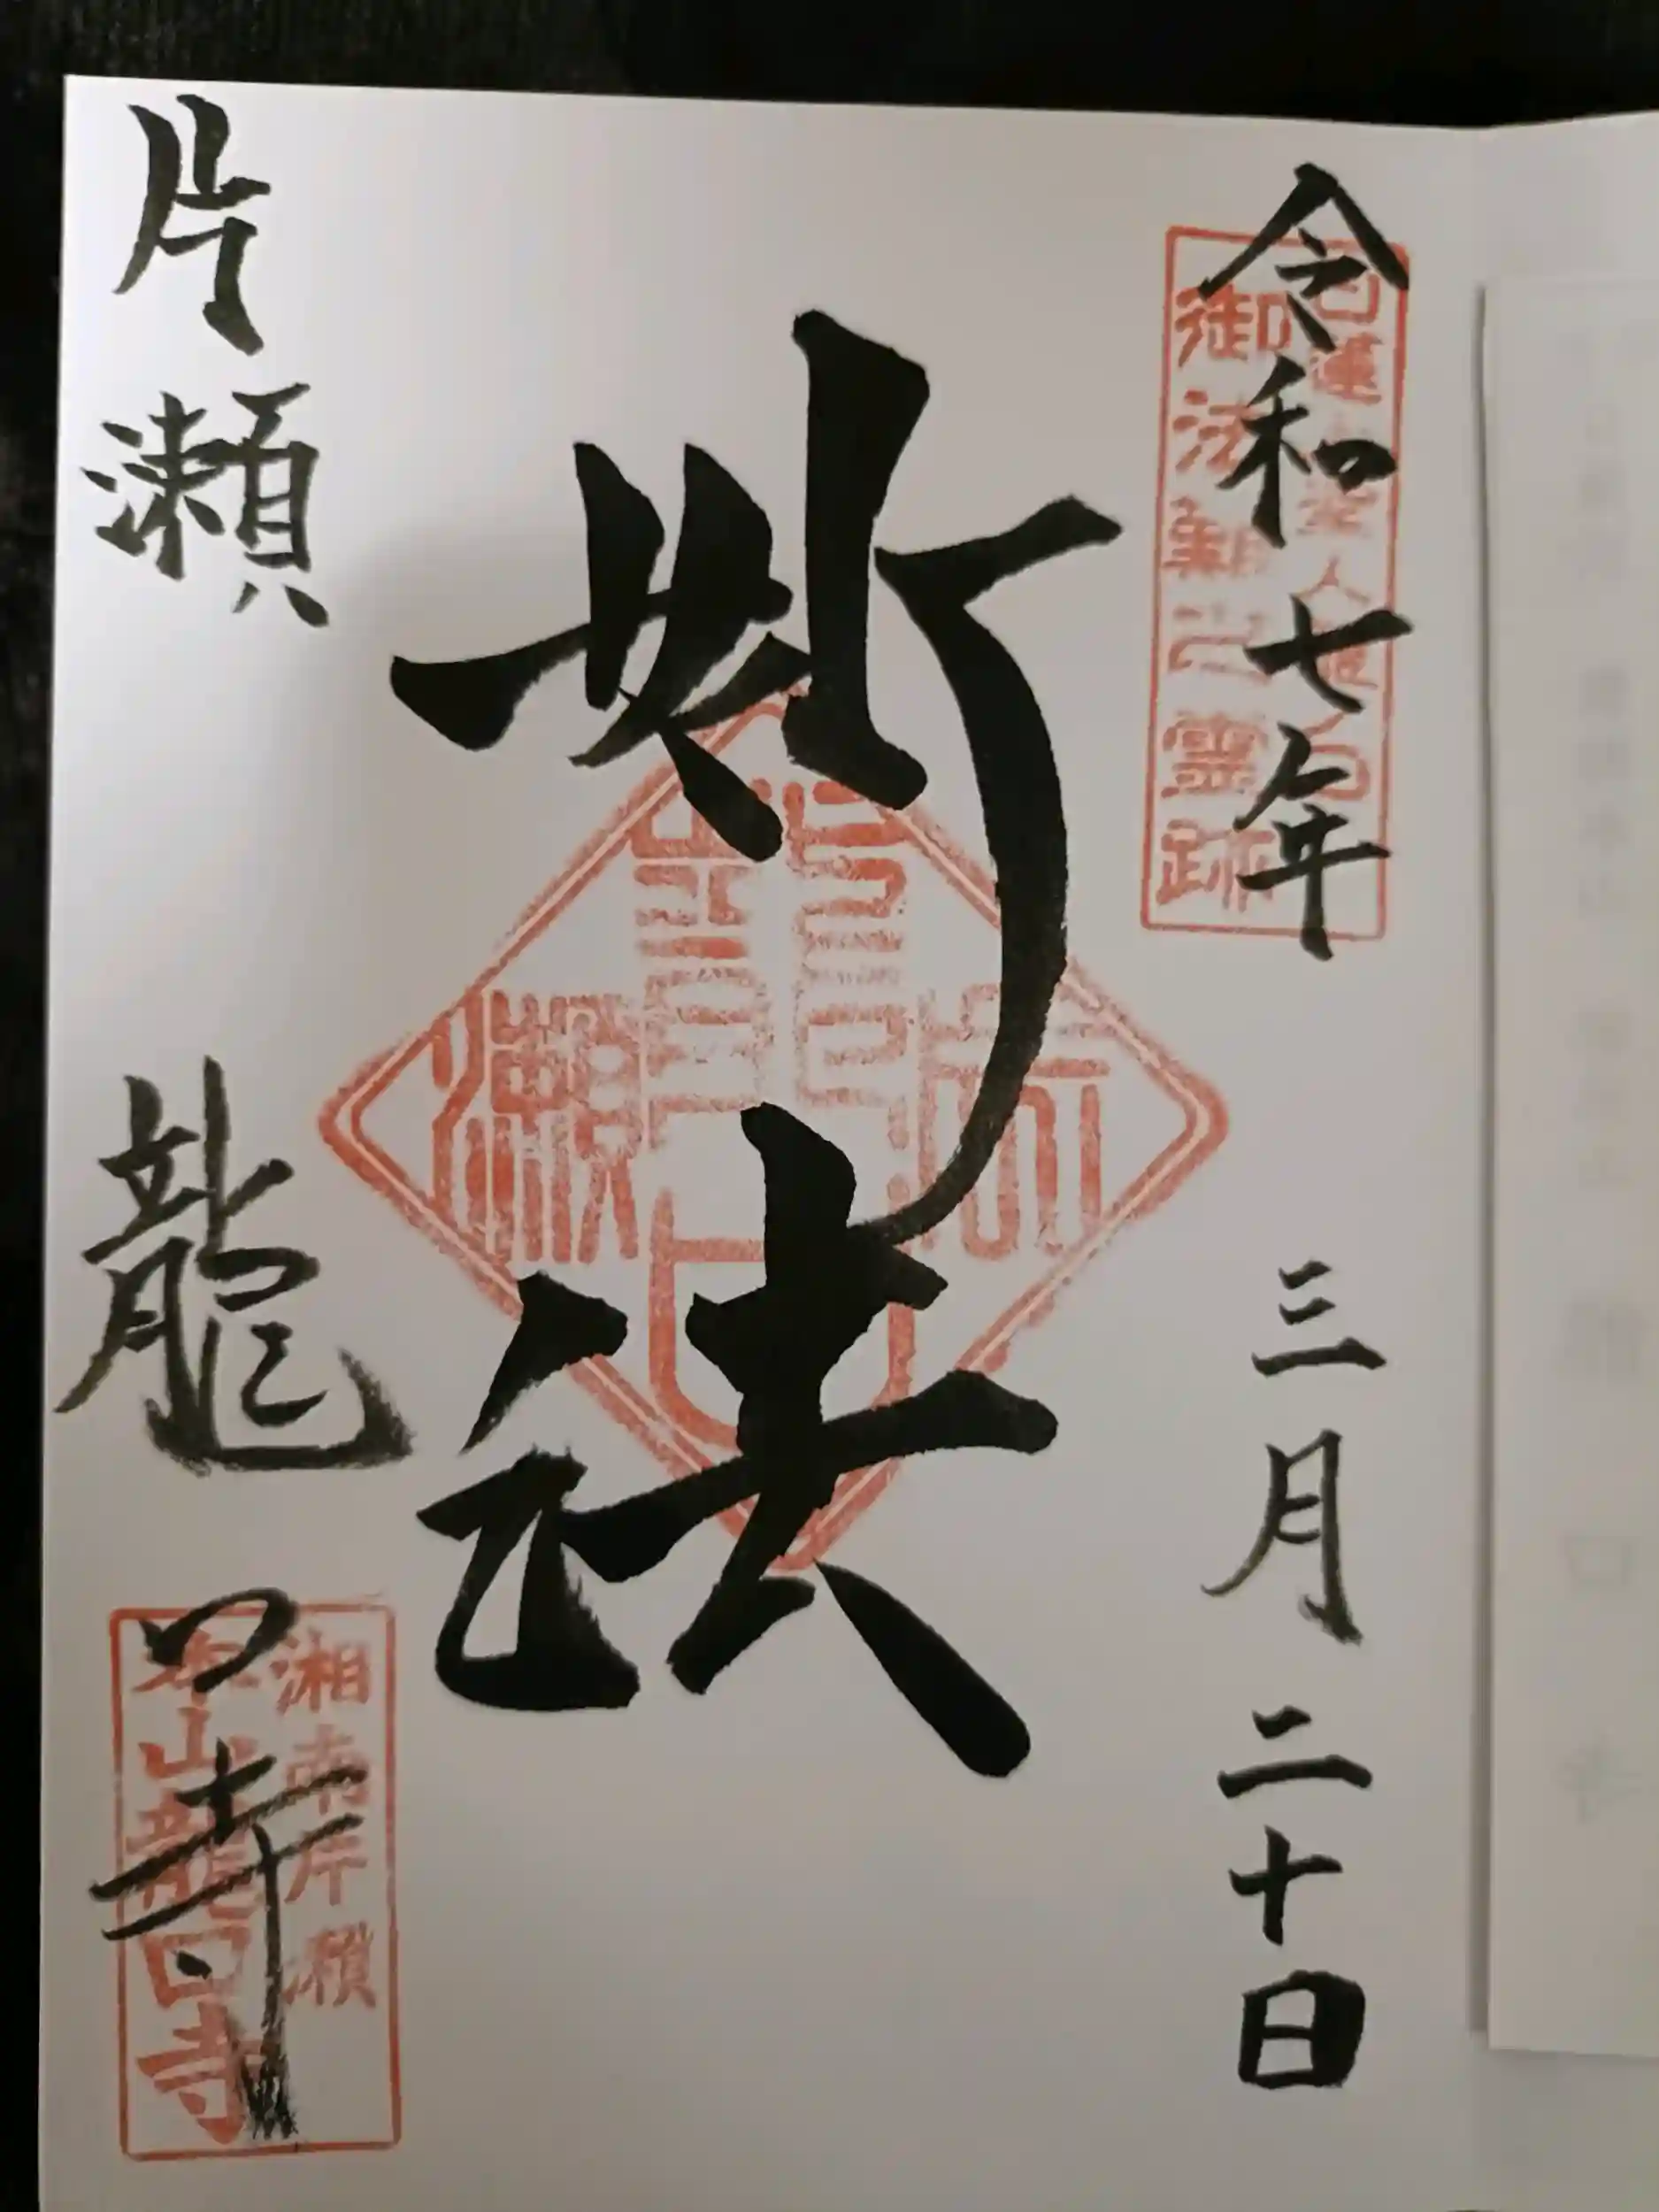 令和七年 三月 二十日
日蓮大聖人龍ノ口
御法難之霊跡
妙法
片瀬 龍口寺
湘南片瀬
本山龍口寺